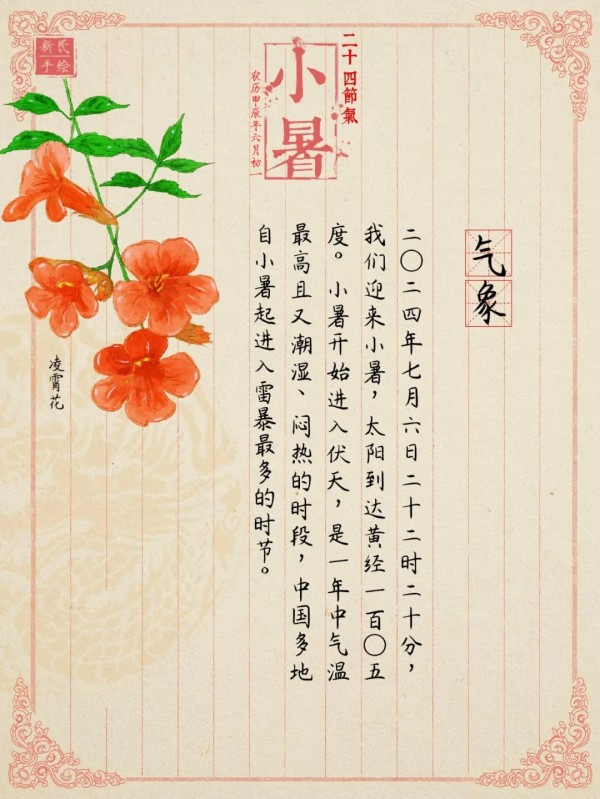 新民
手绘
二十四節氣
小暑
农历甲辰年六月初一
气象
二〇二四年七月六日二十二时二十分，
我们迎来小暑，太阳到达黄经一百〇五
度。小暑开始进入伏天，是一年中气温
最高且又潮湿、闷热的时段，中国多地
自小暑起进入雷暴最多的时节。
凌霄花